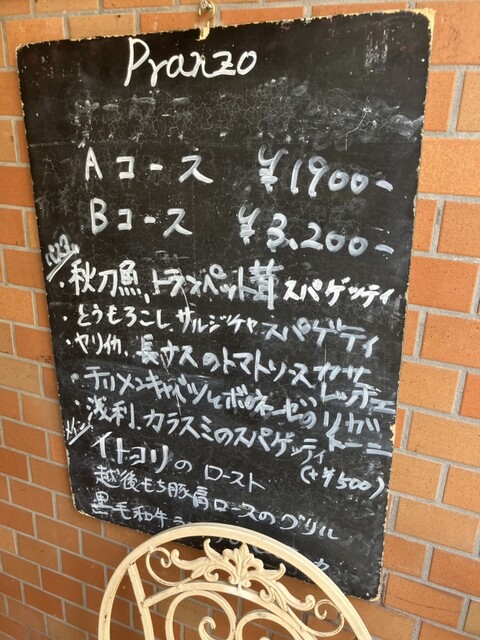 Pranzo
Aコース ¥1900-
Bコース ¥3,200-
パスタ
・秋刀魚、トランペット茸 スパゲッティ
・とうもろこし、サルシッチャ スパゲティ
・ヤリイカ、長ナスのトマトソース カサレッチェ
・チリメンキャベツとボロネーゼのリガトーニ
・浅利、カラスミのスパゲッティ (+¥500)
メイン
イトヨリの ロースト
越後もち豚肩ロースのグリル
黒毛和牛